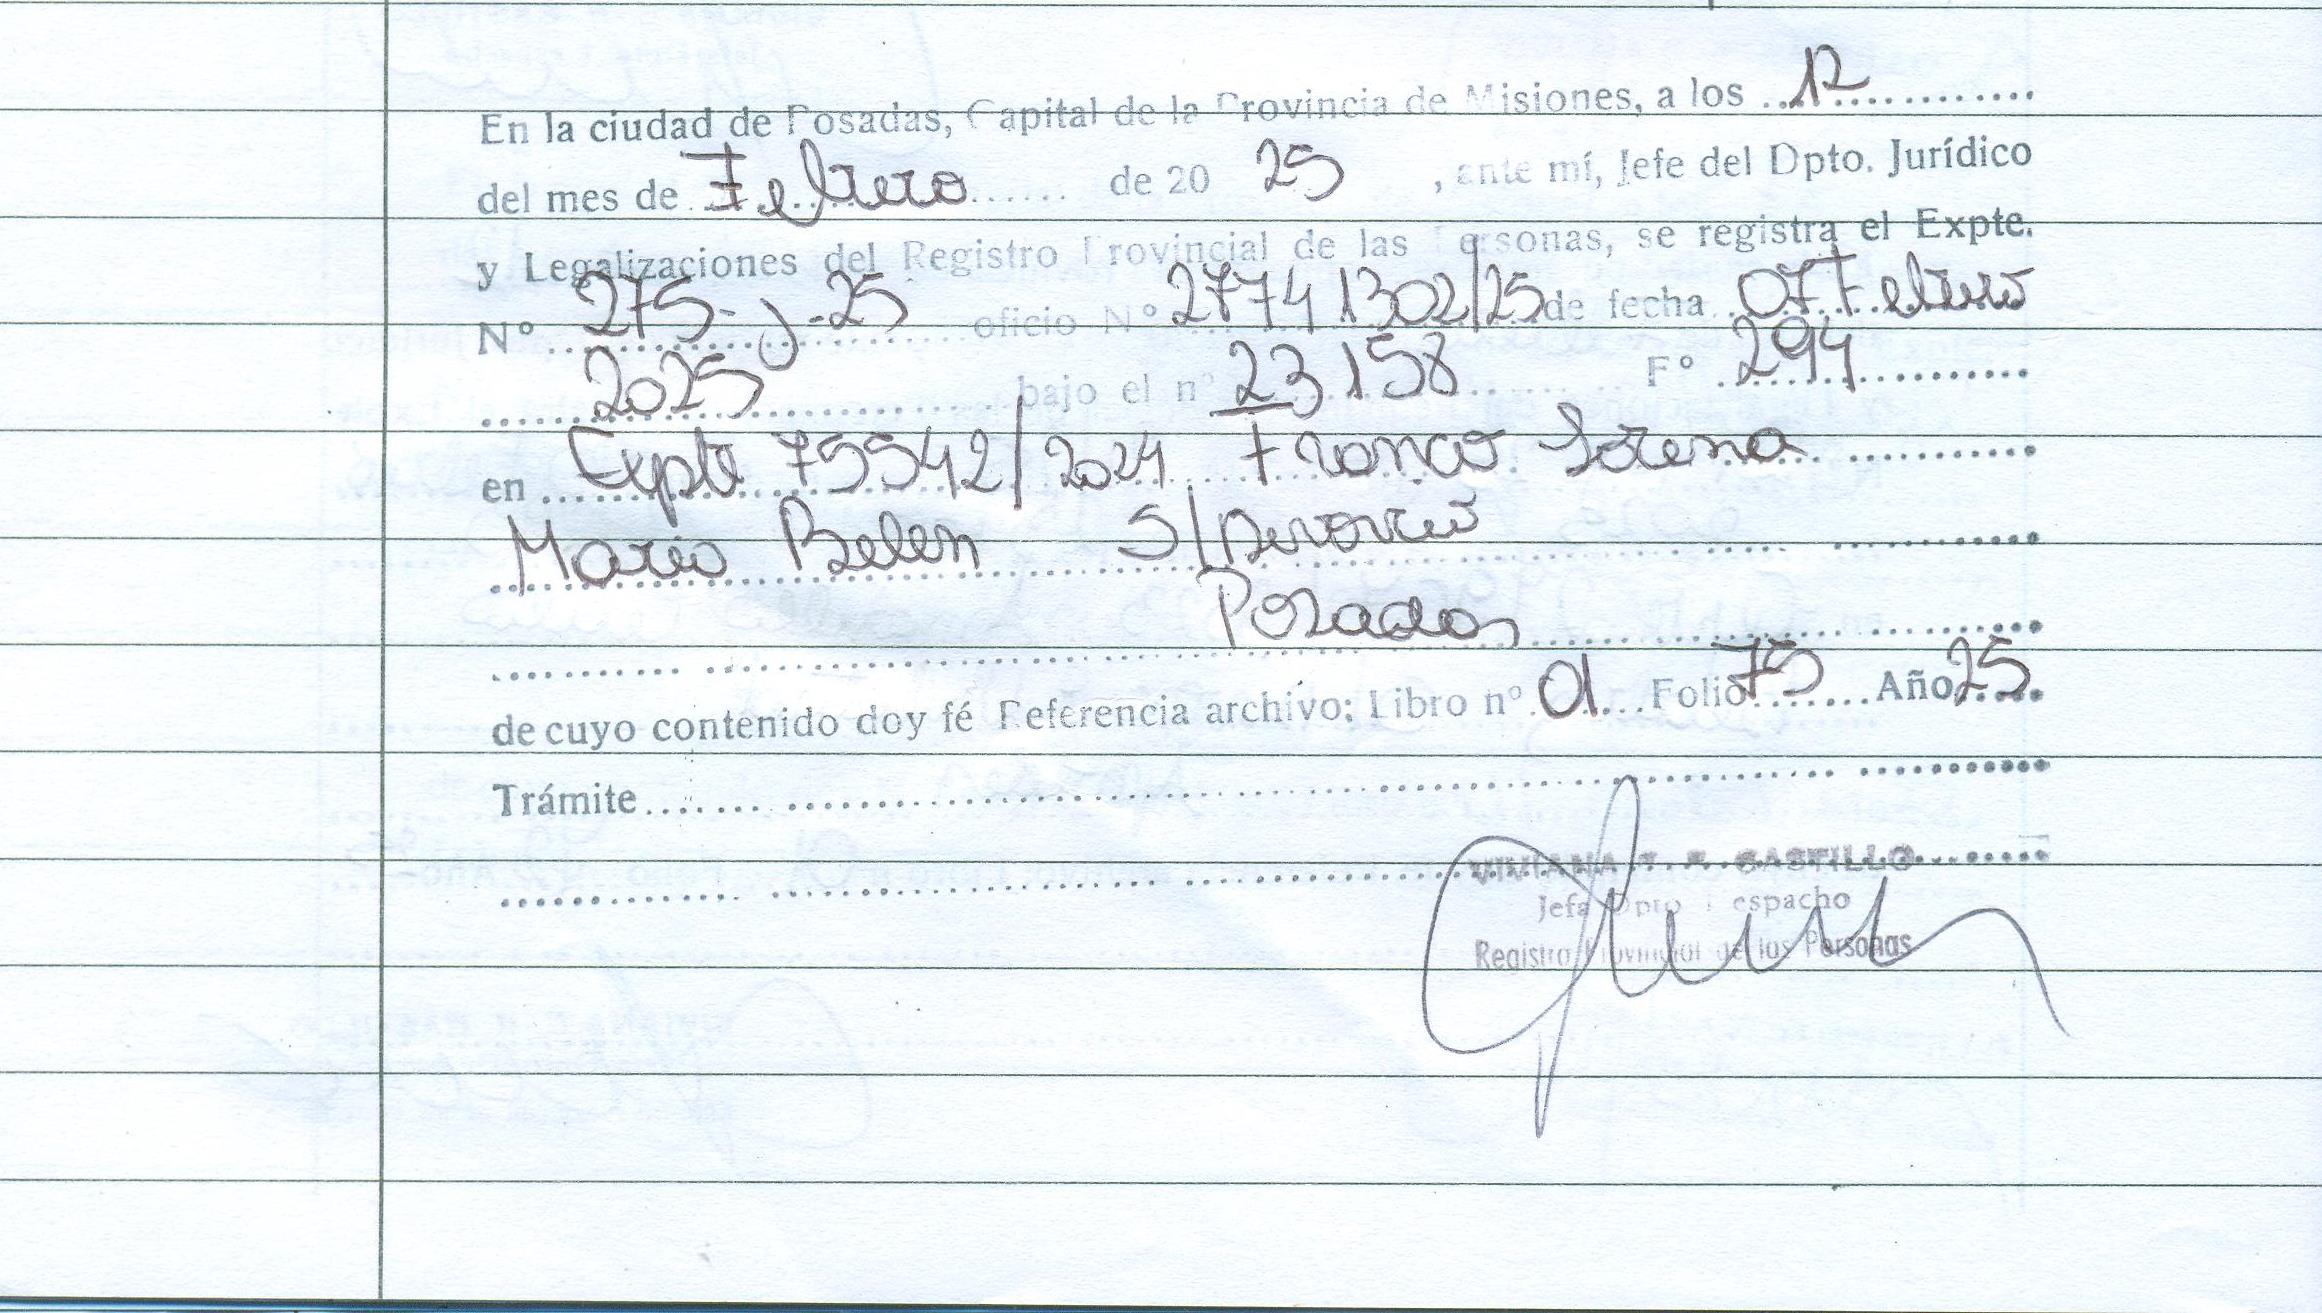 En la ciudad de Posadas, Capital de la Provincia de Misiones, a los 12
del mes de Febrero de 20 25, ante mí, Jefe del Dpto. Jurídico
y Legalizaciones del Registro Provincial de las Personas, se registra el Expte.
N° 275-J-25 oficio N° 27741302/25 de fecha 07 Febrero
2025 bajo el n° 23158 F° 294
en Expte 75542/2024 Franco Lorena
Maria Belen S/ Divorcio
Posadas
de cuyo contenido doy fé Referencia archivo: Libro n° 01 Folio 75 Año 25
Trámite
VIVIANA CASTILLO
Jefa Dpto Despacho
Registro Provincial de las Personas